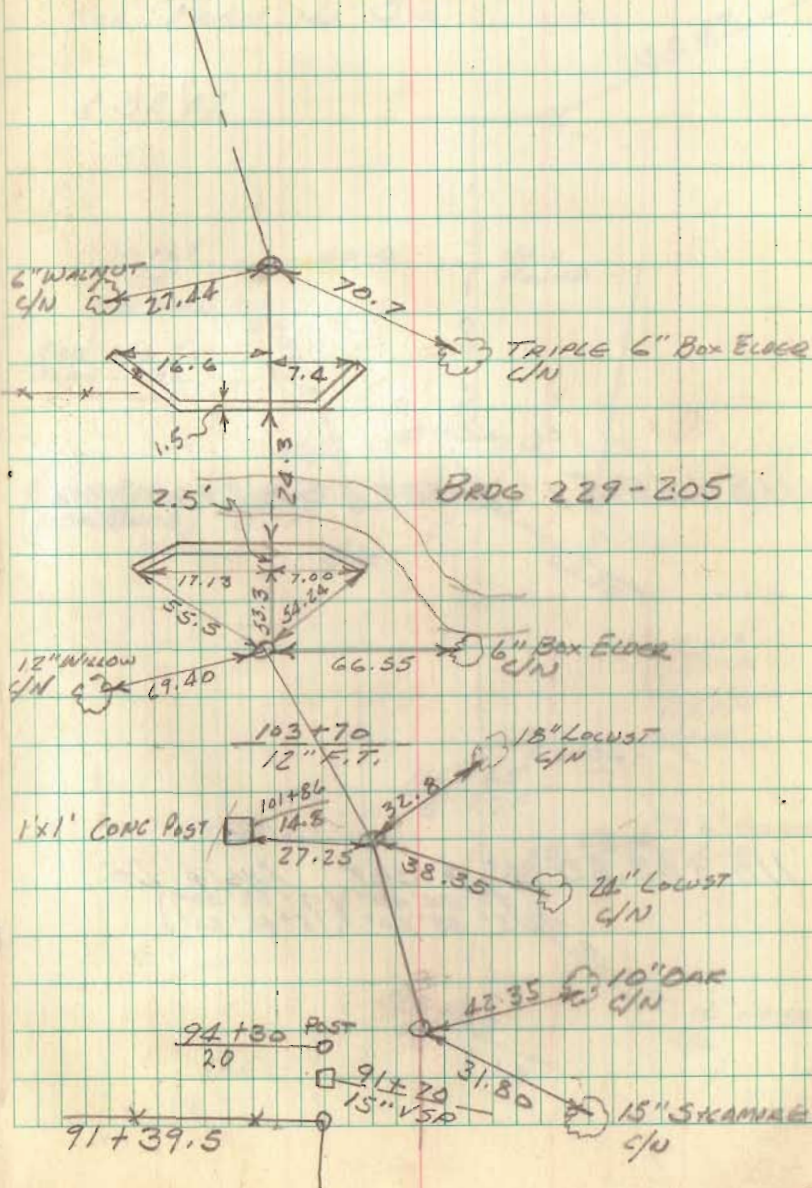 6" WALNUT
C/N
27.44
70.7
TRIPLE 6" BOX ELDER
C/N
16.6
7.4
1.5
24.3
2.5'
BRDG 229-205
17.13
7.00
55.5
53.3
54.24
12" WILLOW
C/N
69.40
66.55
6" BOX ELDER
C/N
103+70
12" F.T.
18" LOCUST
C/N
1'x1' CONC POST
101+86
14.8
27.25
32.8
38.35
24" LOCUST
C/N
10" OAK
C/N
42.35
94+30 POST
20
91+70
15" VSP
31.80
15" SYCAMORE
C/N
91+39.5